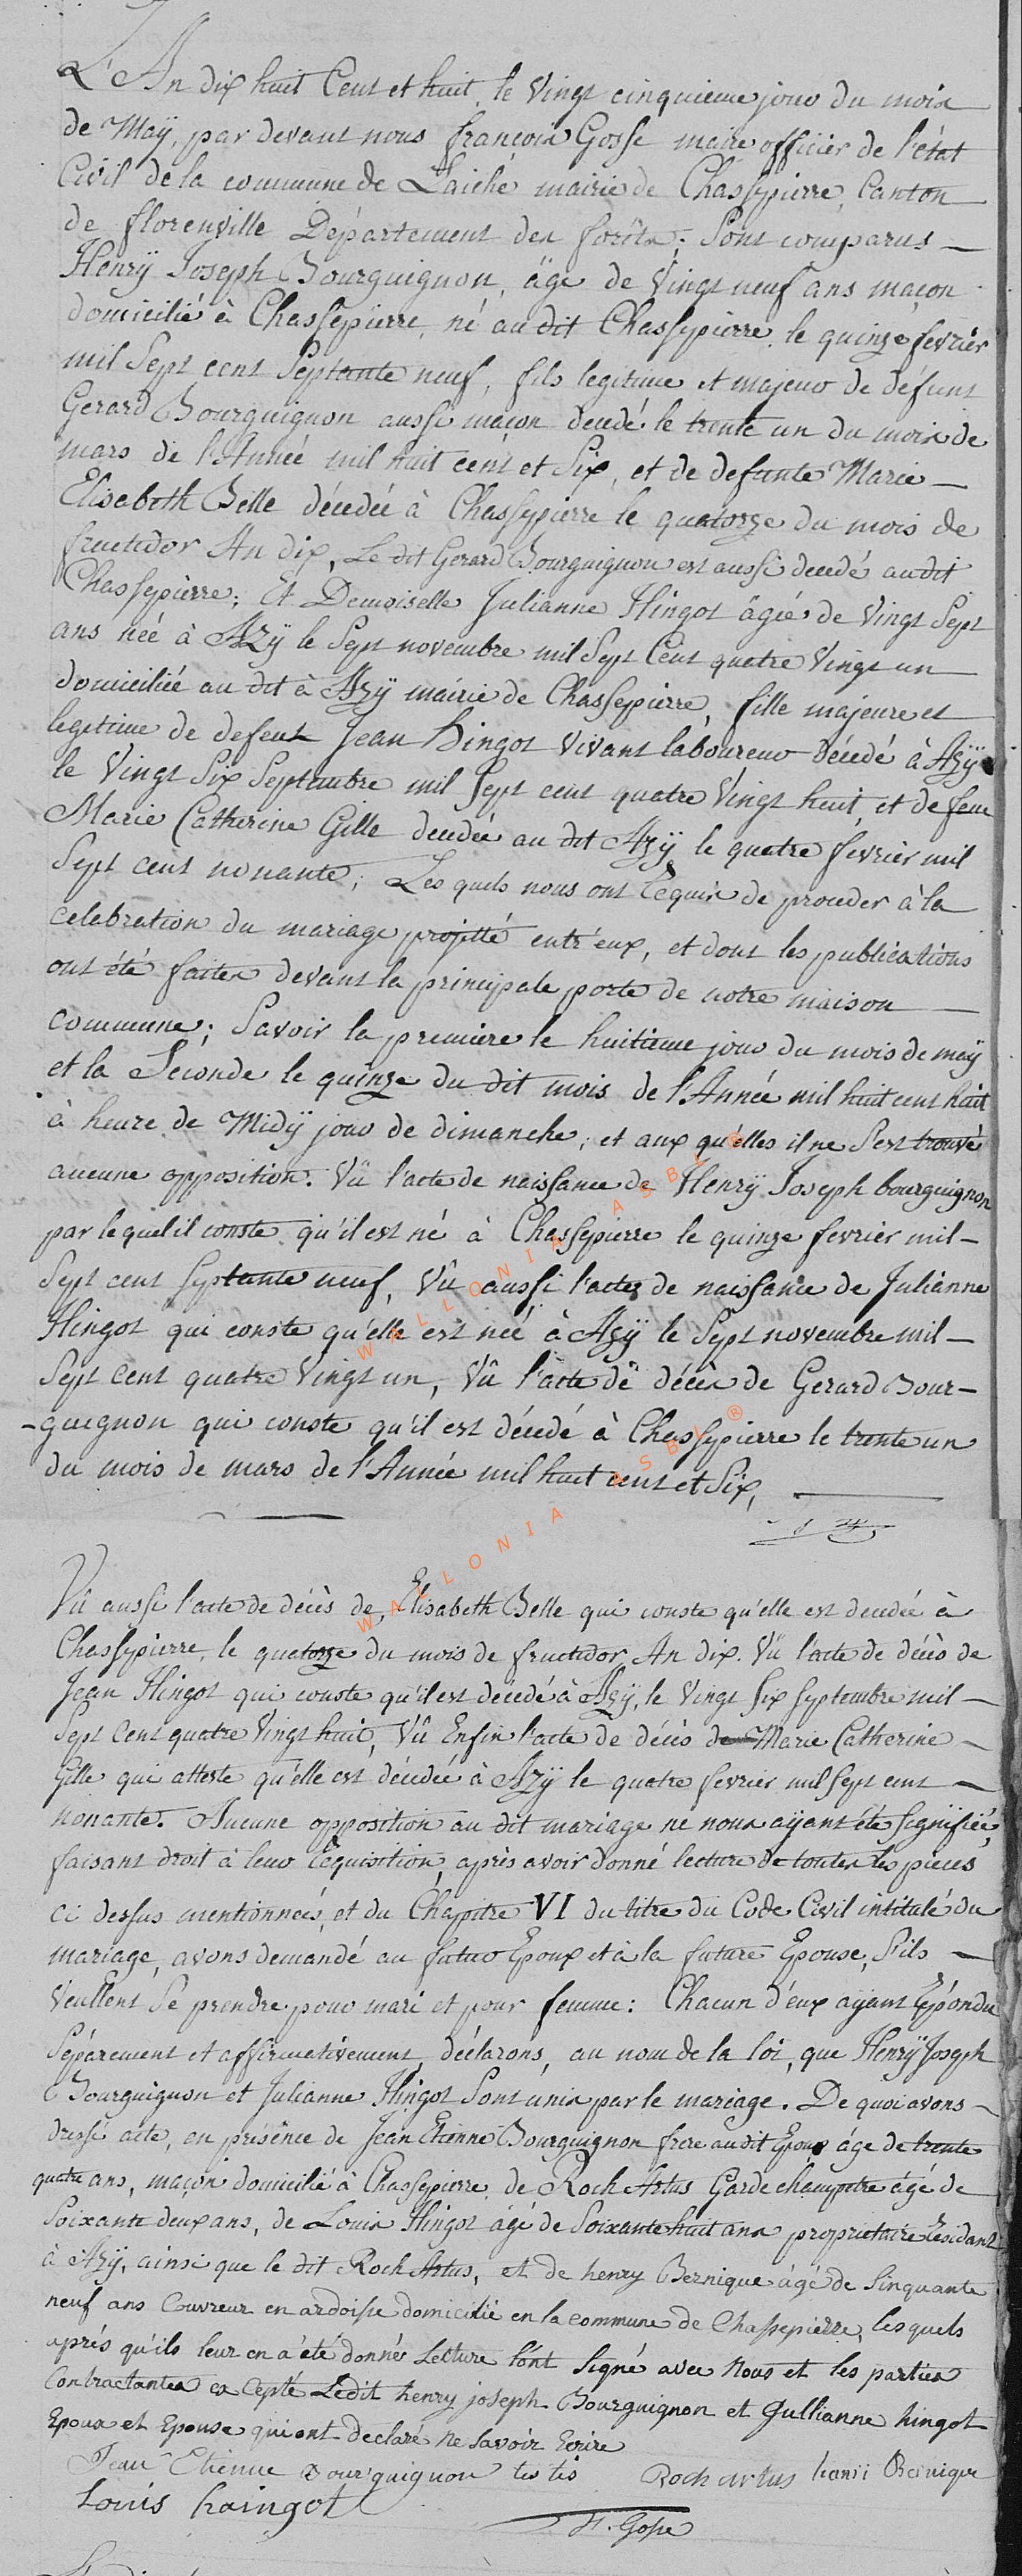 L'An dix huit Cent et huit, le Vingt cinquieme jour du mois
de Maÿ, par devant nous françois Gosse maire officier de l'état
Civil de la commune de Laiche mairie de Chassepierre, Canton
de florenville Département des forêts; Sont comparus
Henrÿ Joseph Bourguignon, âgé de Vingt neuf ans maçon
domicilié à Chassepierre, né au dit Chassepierre, le quinze fevrier
mil Sept cent Septante neuf, fils legitime et majeur de défunt
Gerard Bourguignon aussi maçon decedé le trente un du mois de
mars de l'Année mil huit cent et Six, et de defunte Marie
Elisabeth Belle décedée à Chassepierre le quatorze du mois de
fructidor An dix, Le dit Gerard Bourguignon est aussi decedé audit
Chassepierre; Et Demoiselle Julianne Hingot âgée de Vingt Sept
ans née à Azÿ le Sept novembre mil Sept Cent quatre Vingt un
domiciliée au dit à Azÿ mairie de Chassepierre, fille majeure et
legitime de defeut Jean hingot Vivant laboureur décedé à Azÿ
le Vingt Six Septembre mil Sept cent quatre Vingt huit, et de feue
Marie Catherine Gille decedée au dit Azÿ le quatre fevrier mil
Sept cent nonante; Les quels nous ont requis de proceder à la
celebration du mariage projetté entr'eux, et dont les publications
ont été faites devant la principale porte de notre maison
commune; Savoir la premiere le huitieme jour du mois de maÿ
et la Séconde le quinze du dit mois de l'Année mil huit cent huit
à heure de Midÿ jour de dimanche, et aux qu'elles il ne S'est trouvé
aucune opposition. Vû l'acte de naissance de Henrÿ Joseph bourguignon
par lequel il conste qu'il est né à Chassepierre le quinze fevrier mil
Sept cent Septante neuf, Vû aussi l'acte de naissance de Julianne
Hingot qui conste qu'elle est neé à Azÿ le Sept novembre mil
Sept Cent quatre Vingt un, Vû l'acte de décès de Gerard Bour-
-guignon qui conste qu'il est décedé à Chassepierre le trente un
du mois de mars de l'Année mil huit cent et Six,
Vû aussi l'acte de décès de Elisabeth Belle qui conste qu'elle est decedée à
Chassepierre, le quatorze du mois de fructidor An dix. Vû l'acte de décès de
Jean Hingot qui conste qu'il est décedé à Azÿ, le Vingt Six Septembre mil
Sept Cent quatre Vingt huit, Vû Enfin l'acte de décès de Marie Catherine
Gille qui atteste qu'elle est décedée à Azÿ le quatre fevrier mil Sept cent
nonante. Aucune opposition au dit mariage ne nous aÿant été signifiée,
faisant droit à leur requisition, après avoir donné lecture de toutes les pieces
ci dessus mentionnées, et du Chapitre VI du titre du Code Civil intitulé du
mariage, avons demandé au futur Epoux et à la future Epouse, S'ils
Veullent Sé prendre pour mari et pour femme: Chacun d'eux aÿant répondu
Séparement et affirmativement, déclarons, au nom de la loi, que Henrÿ Joseph
Bourguignon et Julianne Hingot Sont unis par le mariage. De quoi avons
dressé acte, en présence de Jean Etienne Bourguignon frere audit Epoux âgé de trente
quatre ans, maçon domicilié à Chassepierre, de Roch Artus Garde champetre âgé de
Soixante deux ans, de Louis Hingot âgé de Soixante huit ans proprietaire residant
à Azÿ, ainsi que le dit Roch Artus, et de henry Bernique âgé de Sinquante
neuf ans Couvreur en ardoise domicilié en la commune de Chassepierre, lesquels
après qu'ils leur en a été donnés Lecture l'ont Signé avec Nous et les parties
Contractantes excepté Ledit henry joseph Bourguignon et Jullianne hingot
Epoux et Epouse qui ont declaré ne Savoir Ecrire
Jean Etienne Bourguignon testis Roch artus henri Bernique
Louis haingot
F. Gosse
WALLONIA ASBL ®
WALLONIA ASBL ®